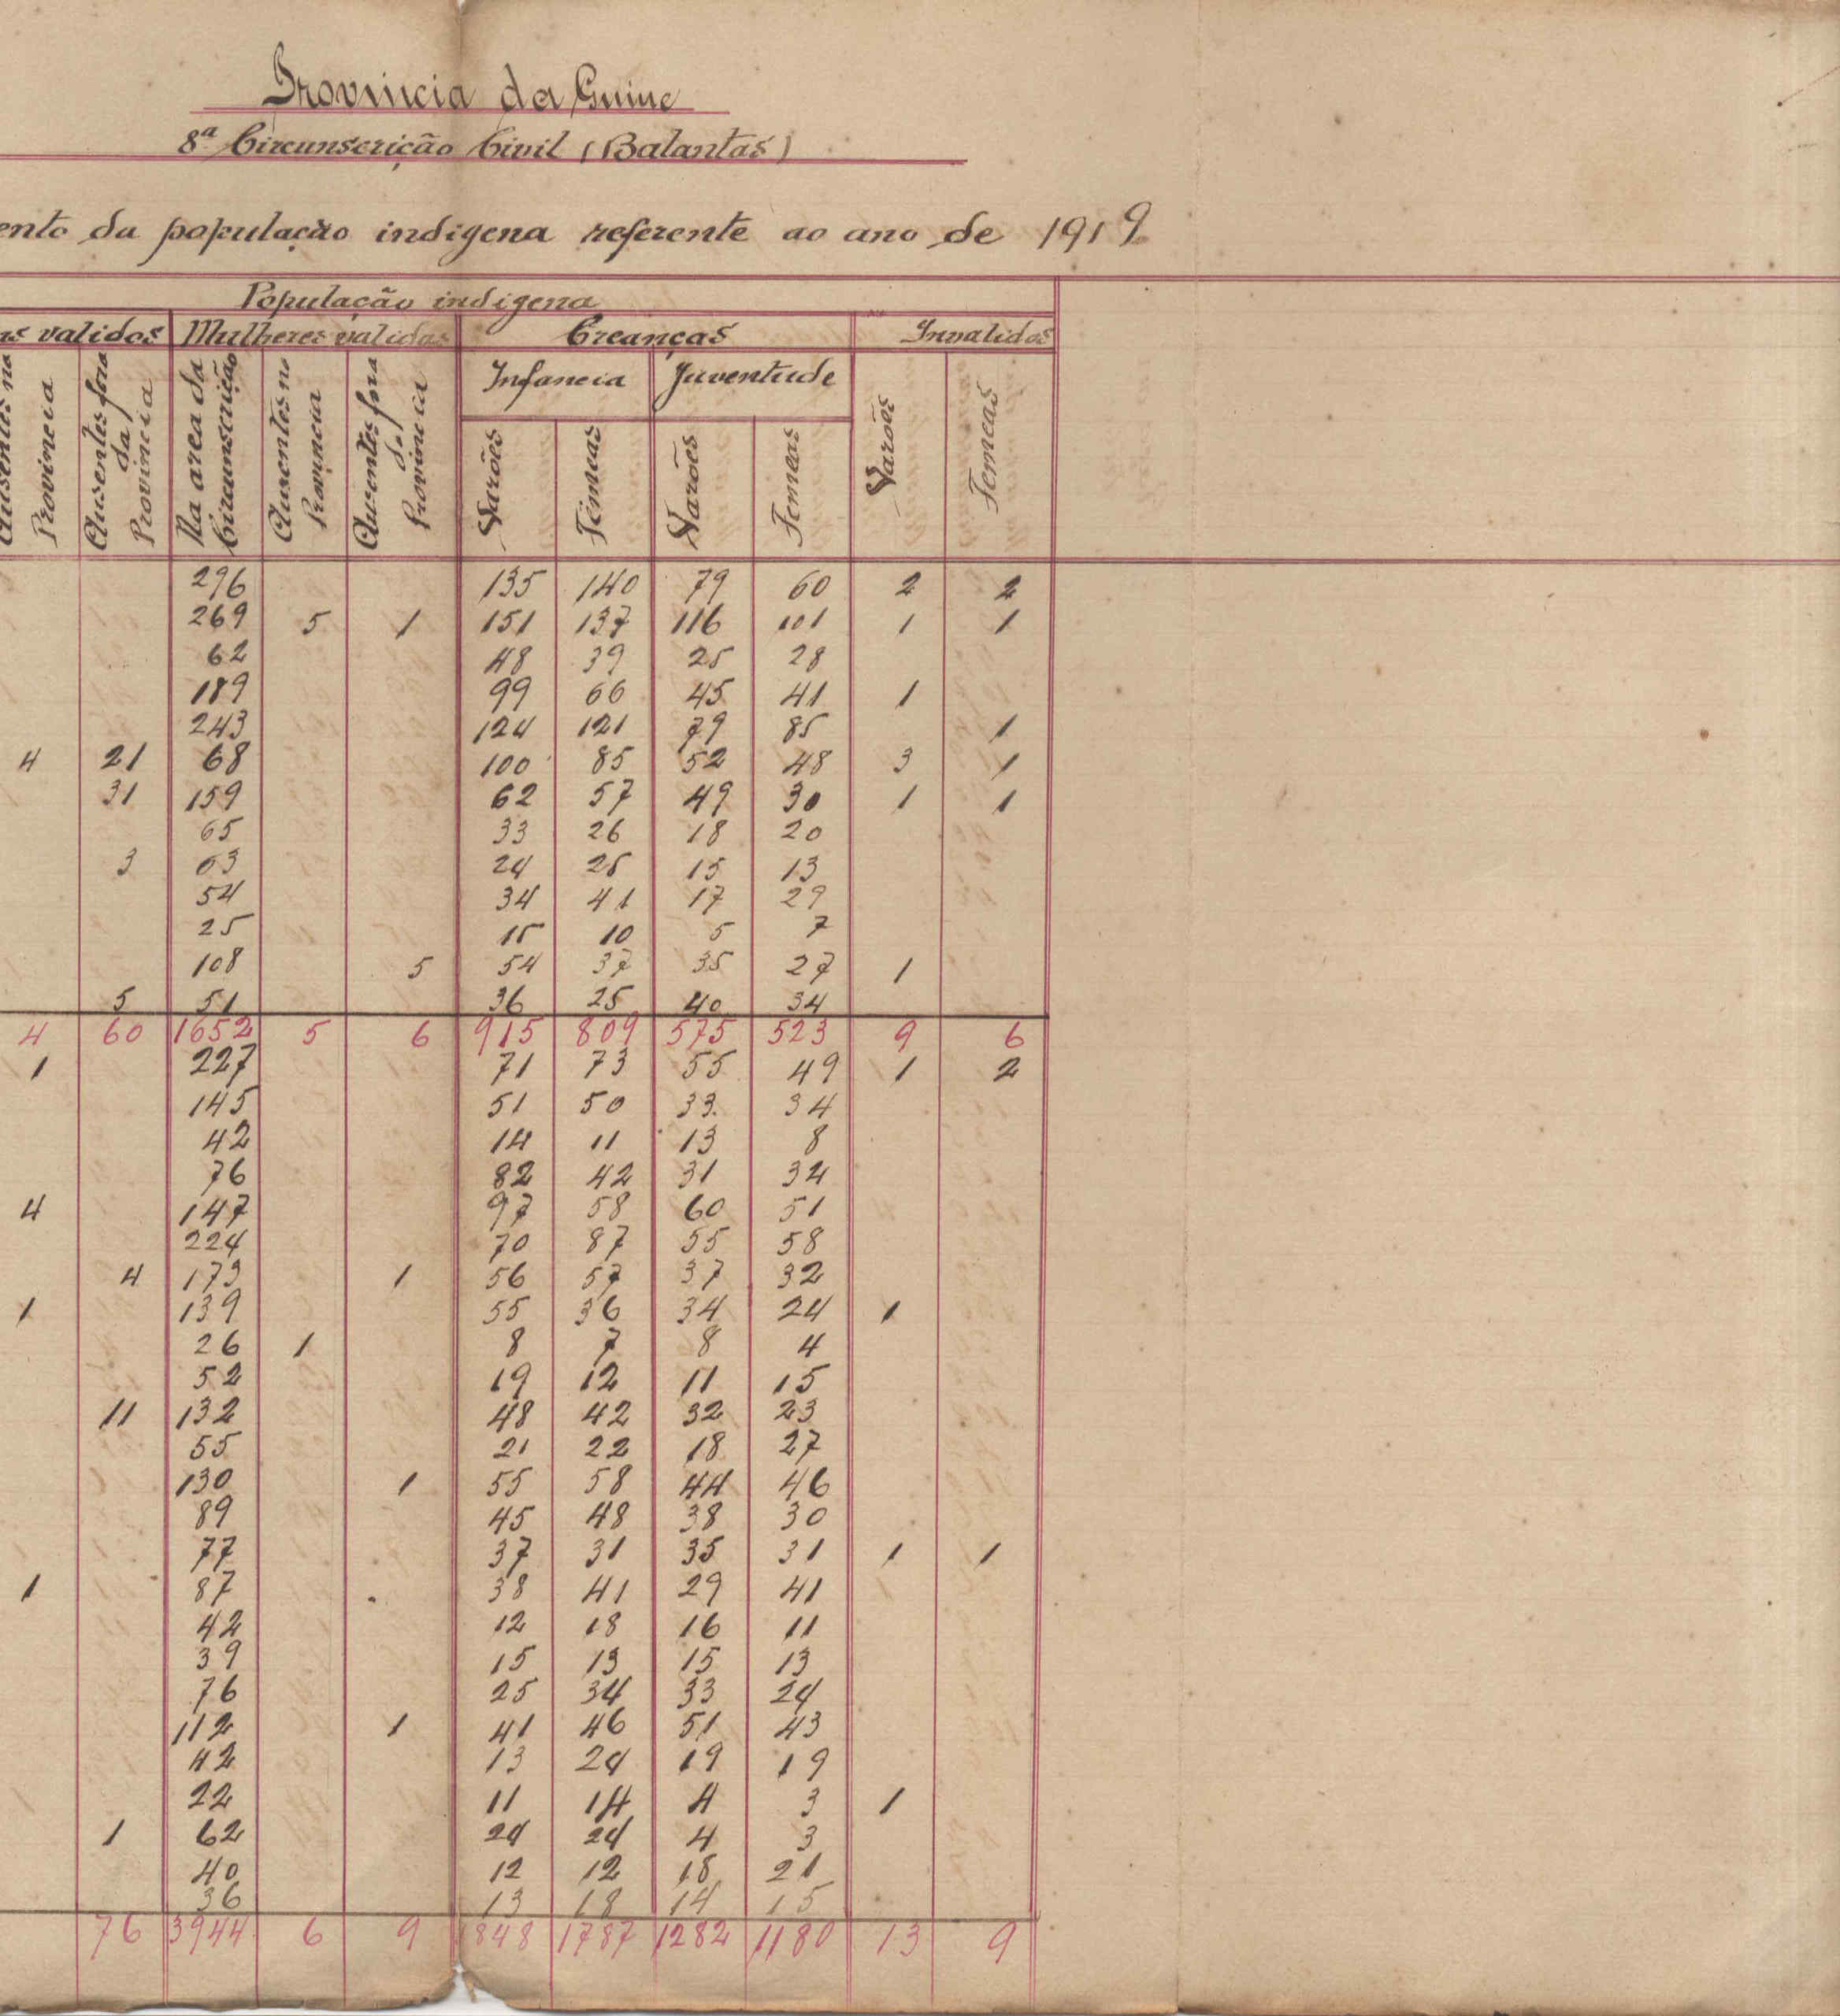 Provincia da Guine
8ª Circunscrição Civil (Balantas)
ento da população indigena referente ao ano de 1919
População indigena
as validos Mulheres validas Creanças Invalidos
Infancia Juventude
Ausentes na Provincia Ausentes fora da Provincia Na area da Circunscrição Ausentes na Provincia Ausentes fora da Provincia Varões Fêmeas Varões Femeas Varões Femeas
296 135 140 79 60 2 2
269 5 1 151 137 116 101 1 1
62 48 39 25 28
189 99 66 45 41 1
243 124 121 79 85 1
4 21 68 100 85 52 48 3 1
31 159 62 57 49 30 1 1
65 33 26 18 20
3 63 24 25 15 13
54 34 41 17 29
25 15 10 5 7
108 5 54 37 35 27 1
5 51 36 25 40 34
4 60 1652 5 6 915 809 575 523 9 6
1 227 71 73 55 49 1 2
145 51 50 33 34
42 14 11 13 8
76 82 42 31 34
4 147 97 58 60 51
224 70 87 55 58
4 173 1 56 57 37 32
1 139 55 36 34 24 1
26 1 8 7 8 4
52 19 12 11 15
11 132 48 42 32 23
55 21 22 18 27
130 1 55 58 44 46
89 45 48 38 30
77 37 31 35 31 1 1
1 87 38 41 29 41
42 12 18 16 11
39 15 13 15 13
76 25 34 33 24
112 1 41 46 51 43
42 13 24 19 19
22 11 14 4 3 1
1 62 24 24 4 3
40 12 12 18 21
36 13 18 14 15
76 3944 6 9 1848 1787 1282 1180 13 9